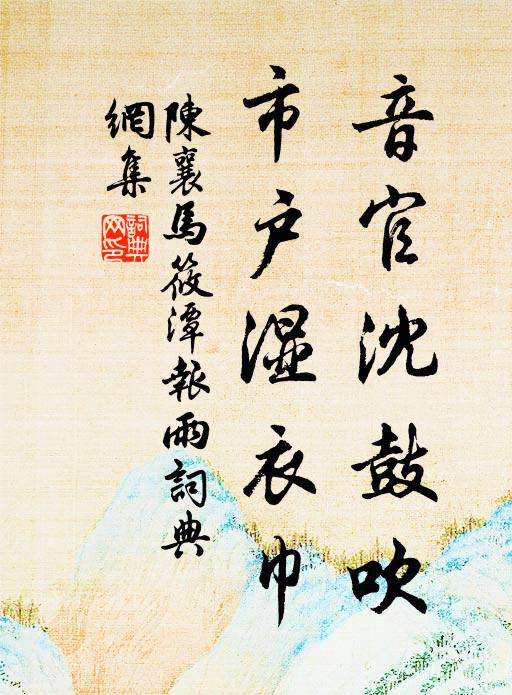 音官沈鼓吹
市戶湿衣巾
陳襄馬筱潭報雨詞典
網集
詞典网印